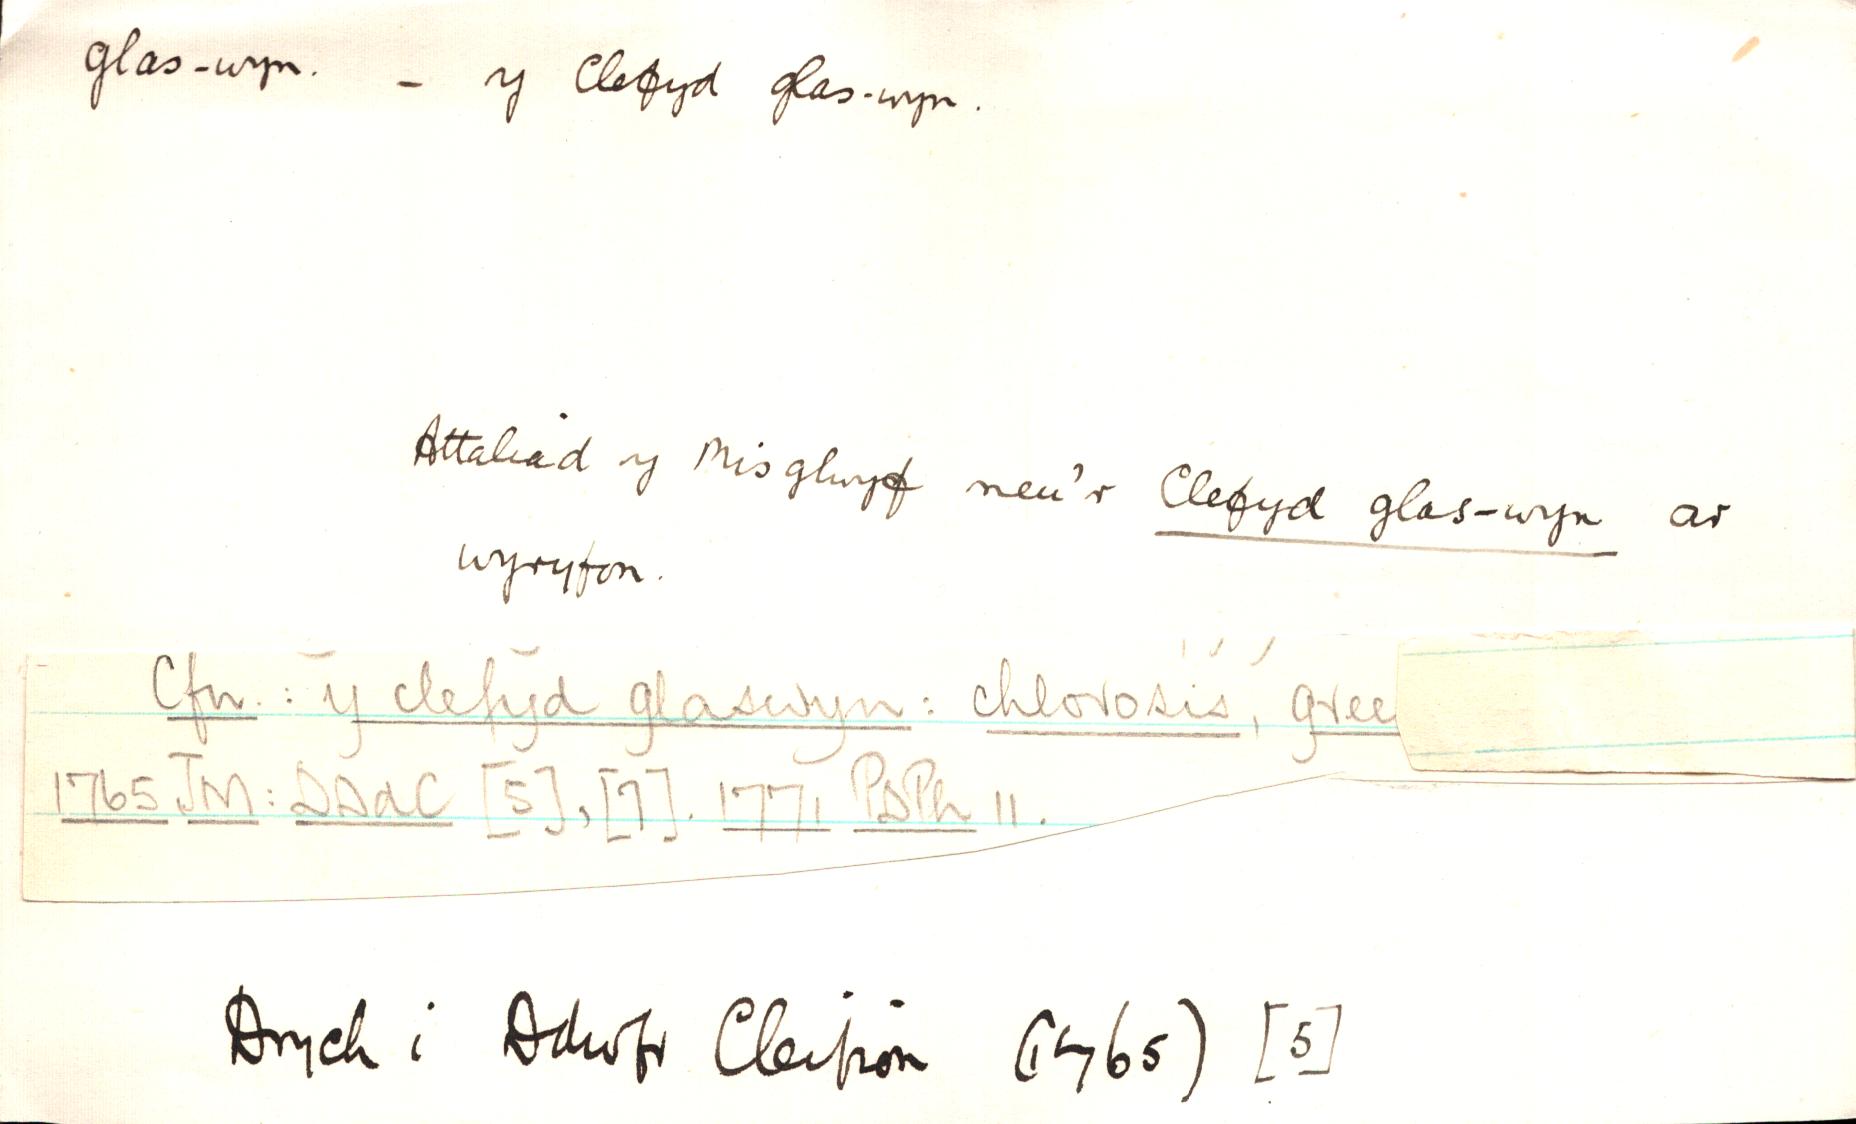 glas-wyn. - y Clefyd glas-wyn.
Attaliad y Misglwyf neu'r Clefyd glas-wyn ar
wyryfon.
Cfn.: y clefyd glaswyn: chlorosis, gree
1765 JM: DDdC [5], [7]. 1771 PDPh 11.
Drych i Ddwfr Cleifion (1765) [5]